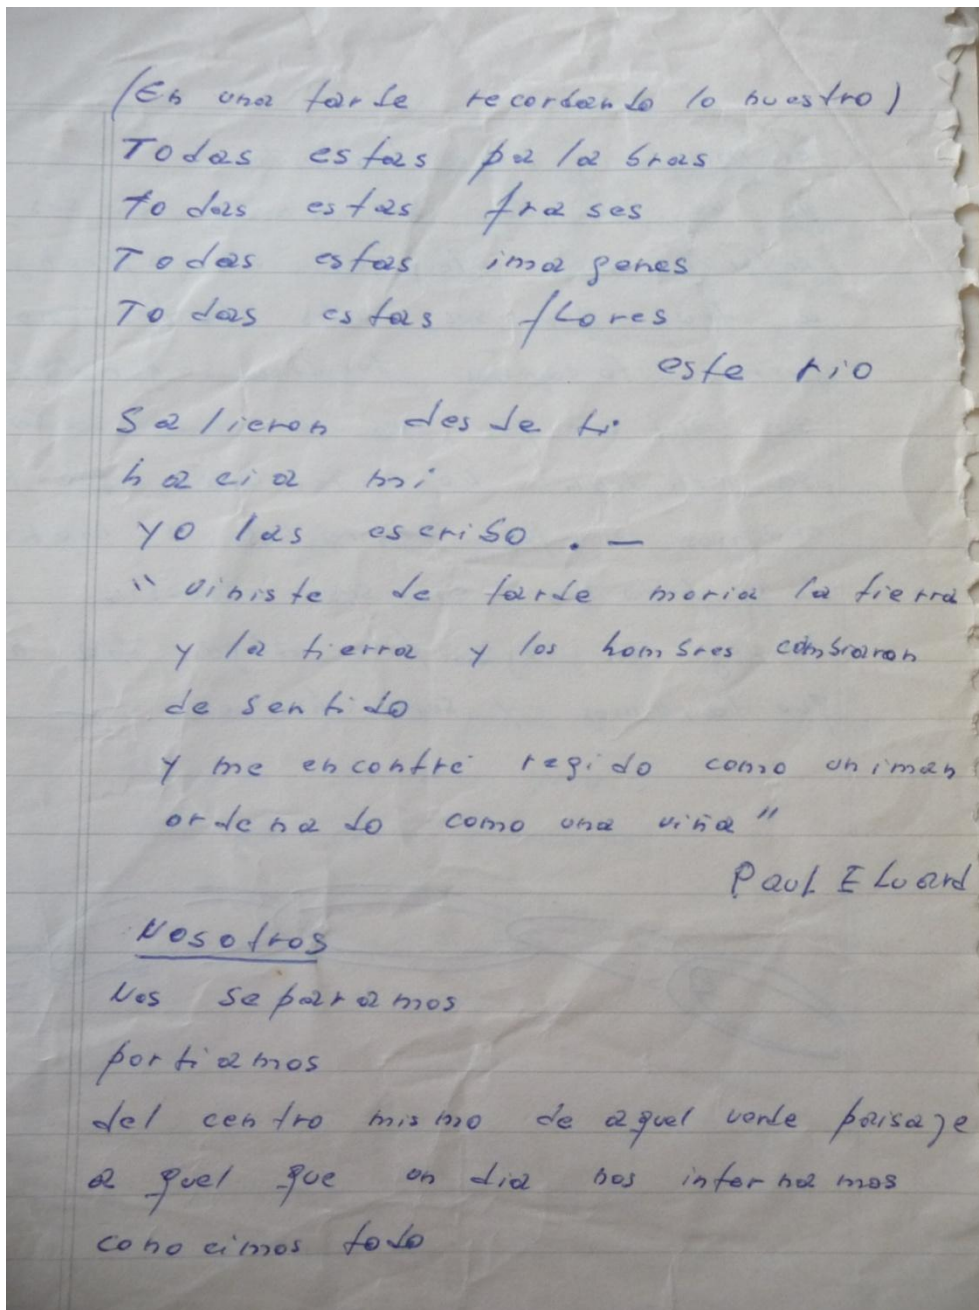 (En una tarde recordando lo nuestro)
Todas estas palabras
todas estas frases
Todas estas imagenes
Todas estas flores
este rio
Salieron desde ti
hacia mi
yo las escribo . —
"viniste de tarde moria la tierra
y la tierra y los hombres cambiaron
de sentido
y me encontré regido como un iman
ordenado como una viña"
Paul Eluard
Nosotros
Nos separamos
partiamos
del centro mismo de aquel verde paisaje
aquel que un dia nos internamos
conocimos todo